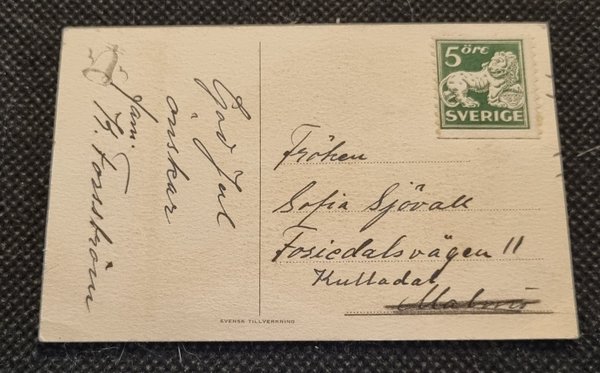 God Jul
önskar
fam.
Hj. Forsström
5 öre
SVERIGE
Fröken
Sofia Sjövall
Fosiedalsvägen 11
Kulladal
Malmö
SVENSK TILLVERKNING